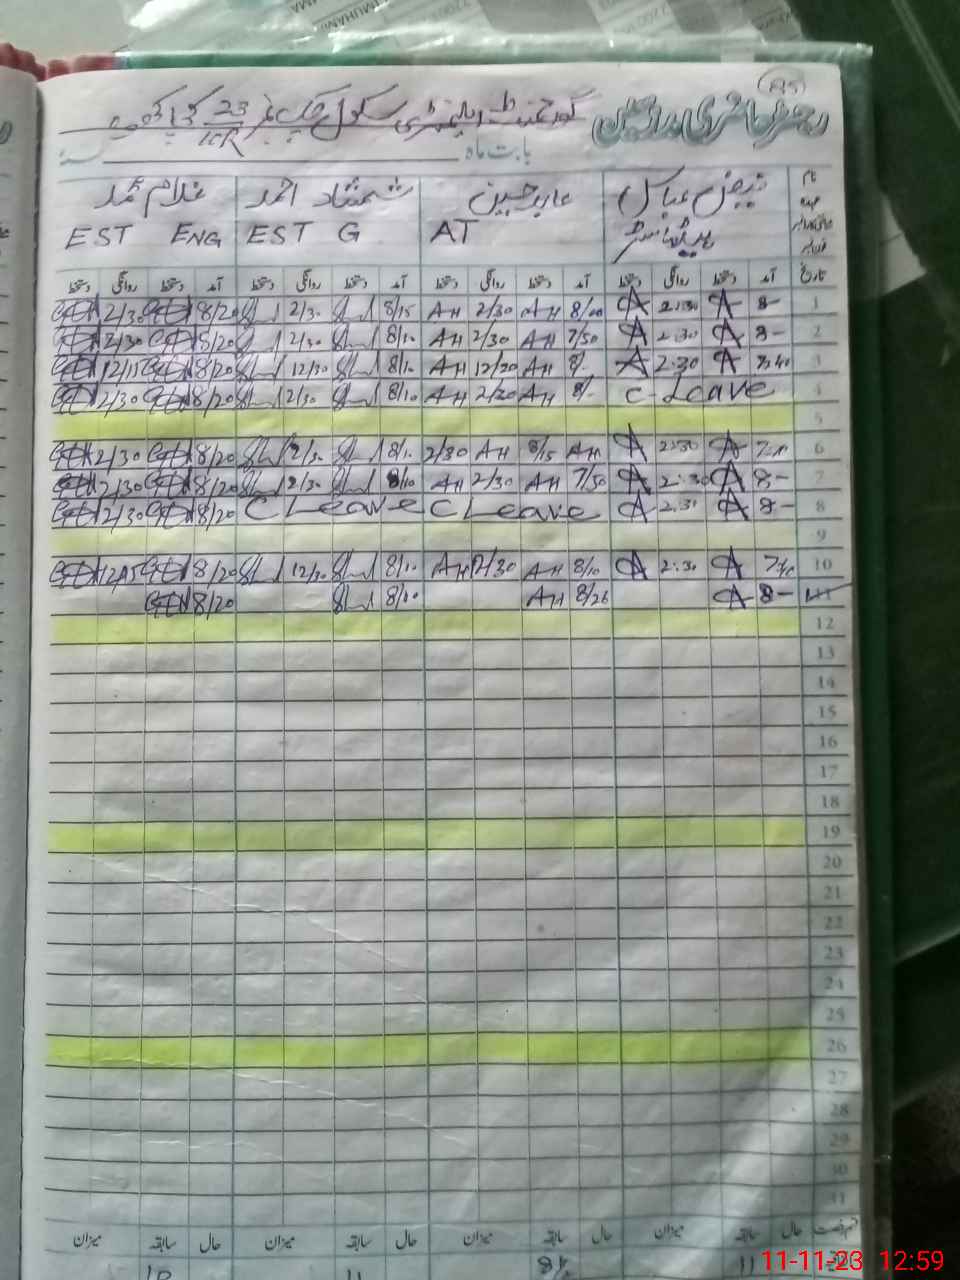 رجسٹر حاضری مدرسین
گورنمنٹ ایلیمنٹری سکول چک نمبر 23
بابت ماہ
نام
فیض عباس
عابد حسین
شمشاد احمد
غلام محمد
عہدہ
AT
EST G
EST ENG
تاریخ آمد دستخط روانگی دستخط آمد دستخط روانگی دستخط آمد دستخط روانگی دستخط آمد دستخط روانگی دستخط
1 8- A 2:30 A 8/00 AH 2/30 AH 8/15 2/30 8/20 2/30
2 8- A 2:30 A 7/50 AH 2/30 AH 8/10 2/30 8/20 2/30
3 7:40 A 2:30 A 8/- AH 12/20 AH 8/10 12/30 8/20 12/15
4 C-Leave 8/- AH 2/20 AH 8/10 2/30 8/20 2/30
5
6 A 2:30 A AH 8/15 AH 2/30 8/10 2/30 8/20 2/30
7 8- A 2:30 A 7/50 AH 2/30 AH 8/10 2/30 8/20 2/30
8 8- A 2:30 A C Leave C Leave 8/20 2/30
9
10 7:40 A 2:30 A 8/10 AH 2/30 AH 8/10 12/30 8/20 12/15
8- A 8/26 AH 8/10 8/20
12
13
14
15
16
17
18
19
20
21
22
23
24
25
26
27
28
29
30
31
حال سابقہ میزان حال سابقہ میزان حال سابقہ میزان حال سابقہ میزان
11-11-23 12:59